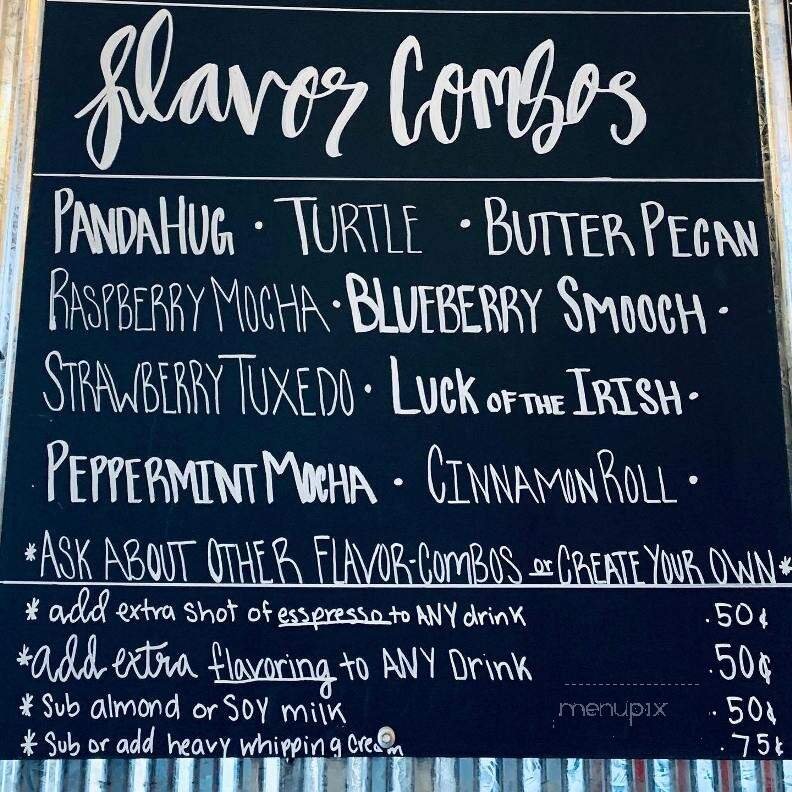 flavor Combos
PANDAHUG · TURTLE · BUTTER PECAN
RASPBERRY MOCHA · BLUEBERRY SMOOCH ·
STRAWBERRY TUXEDO · LUCK OF THE IRISH ·
PEPPERMINT MOCHA · CINNAMON ROLL ·
*ASK ABOUT OTHER FLAVOR-COMBOS or CREATE YOUR OWN*
* add extra shot of esspresso to ANY drink .50¢
*add extra flavoring to ANY Drink .50¢
* Sub almond or SOY milk .50¢
menupix
* Sub or add heavy whipping cream .75¢